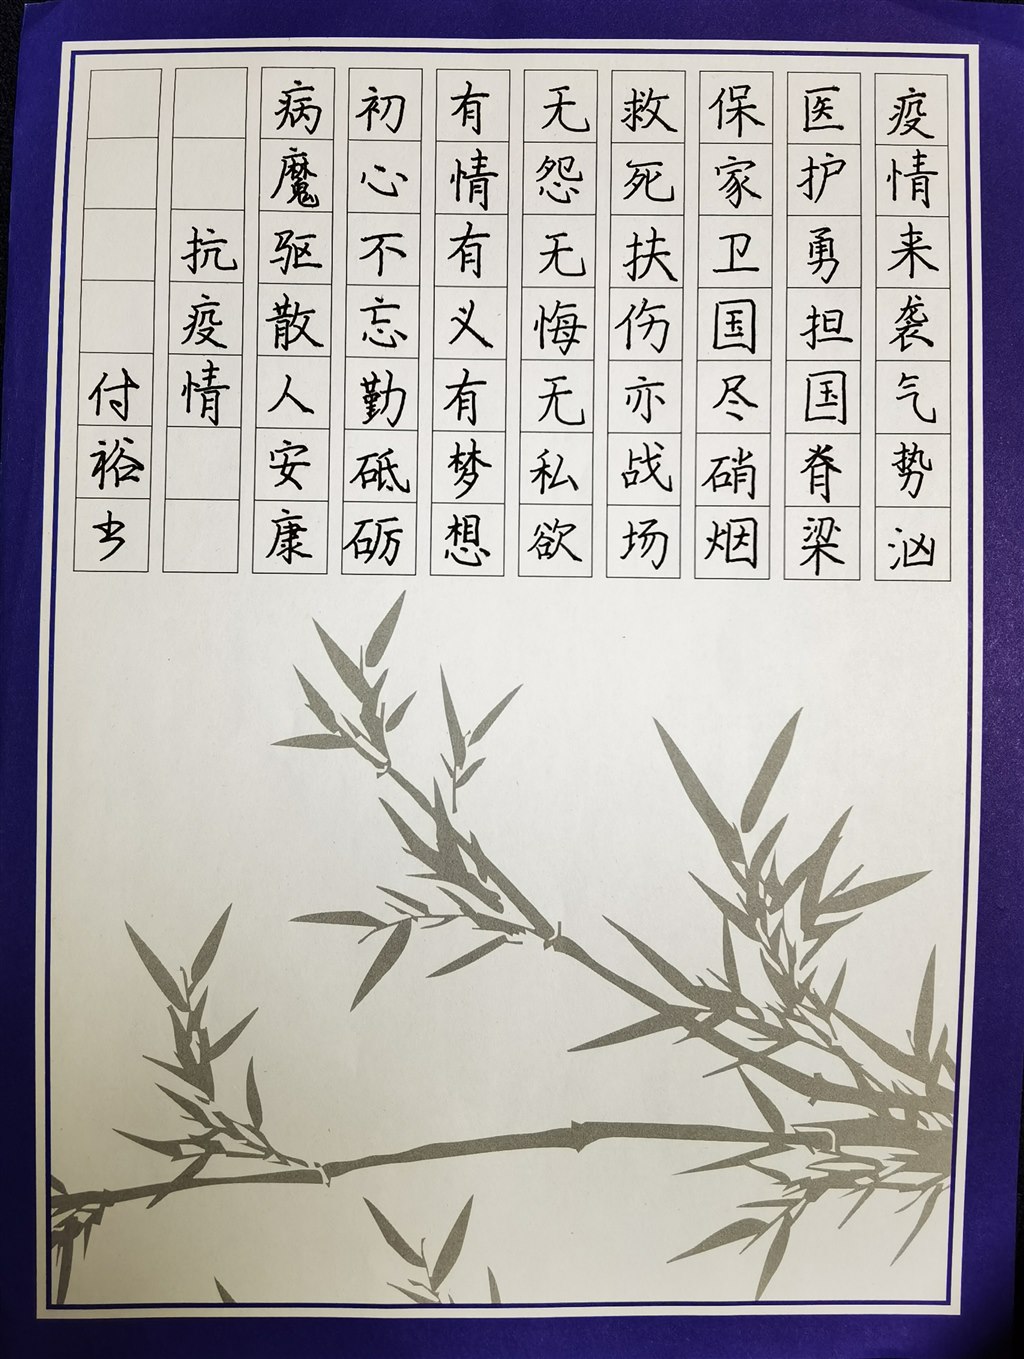 疫情来袭气势汹
医护勇担国脊梁
保家卫国尽硝烟
救死扶伤亦战场
无怨无悔无私欲
有情有义有梦想
初心不忘勤砥砺
病魔驱散人安康
抗疫情
付裕书